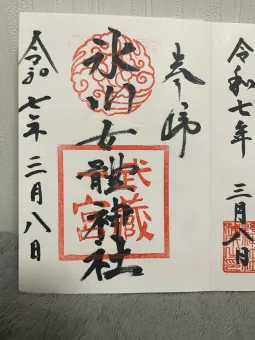 令和七年 三月八日
奉拝
氷川女體神社
武藏
一宮
令和七年三月八日